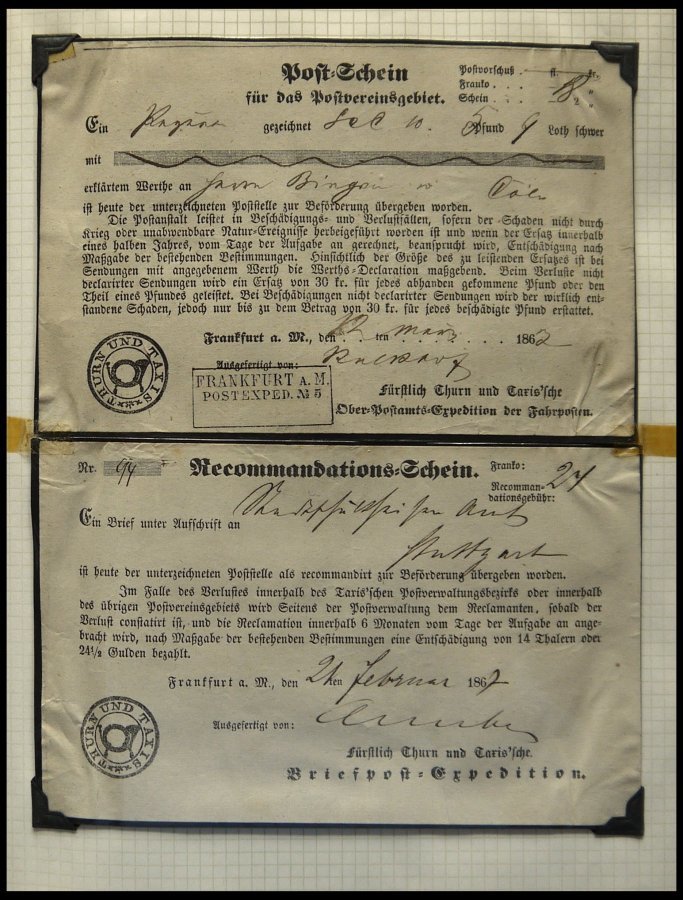 Post-Schein
für das Postvereinsgebiet.
Postvorschuß . fl. kr.
Franko . . . "
Schein . . . 2 "
Ein gezeichnet 10. Pfund 9 Loth schwer
mit
erklärtem Werthe an Herrn Cöln
ist heute der unterzeichneten Poststelle zur Beförderung übergeben worden.
Die Postanstalt leistet in Beschädigungs- und Verlustfällen, sofern der Schaden nicht durch
Krieg oder unabwendbare Natur-Ereignisse herbeigeführt worden ist und wenn der Ersatz innerhalb
eines halben Jahres, vom Tage der Aufgabe an gerechnet, beansprucht wird, Entschädigung nach
Maßgabe der bestehenden Bestimmungen. Hinsichtlich der Größe des zu leistenden Ersatzes ist bei
Sendungen mit angegebenem Werth die Werths-Declaration maßgebend. Beim Verluste nicht
declarirter Sendungen wird ein Ersatz von 30 kr. für jedes abhanden gekommene Pfund oder den
Theil eines Pfundes geleistet. Bei Beschädigungen nicht declarirter Sendungen wird der wirklich ent-
standene Schaden, jedoch nur bis zu dem Betrag von 30 kr. für jedes beschädigte Pfund erstattet.
Frankfurt a. M., den 12 ten März 1862
Ausgefertigt von:
THURN UND TAXIS
FRANKFURT A. M.
POSTEXPED. № 5
Fürstlich Thurn und Taxis'sche
Ober-Postamts-Expedition der Fahrposten.
Nr. 94 Recommandations-Schein.
Franko:
Recomman-
dationsgebühr:
Ein Brief unter Aufschrift an Stadtschultheisen Amt
Stuttgart
ist heute der unterzeichneten Poststelle als recommandirt zur Beförderung übergeben worden.
Im Falle des Verlustes innerhalb des Taxis'schen Postverwaltungsbezirks oder innerhalb
des übrigen Postvereinsgebiets wird Seitens der Postverwaltung dem Reclamanten, sobald der
Verlust constatirt ist, und die Reclamation innerhalb 6 Monaten vom Tage der Aufgabe an ange-
bracht wird, nach Maßgabe der bestehenden Bestimmungen eine Entschädigung von 14 Thalern oder
24½ Gulden bezahlt.
Frankfurt a. M., den ten Februar 1867
Ausgefertigt von:
THURN UND TAXIS
Fürstlich Thurn und Taxis'sche
Briefpost-Expedition.